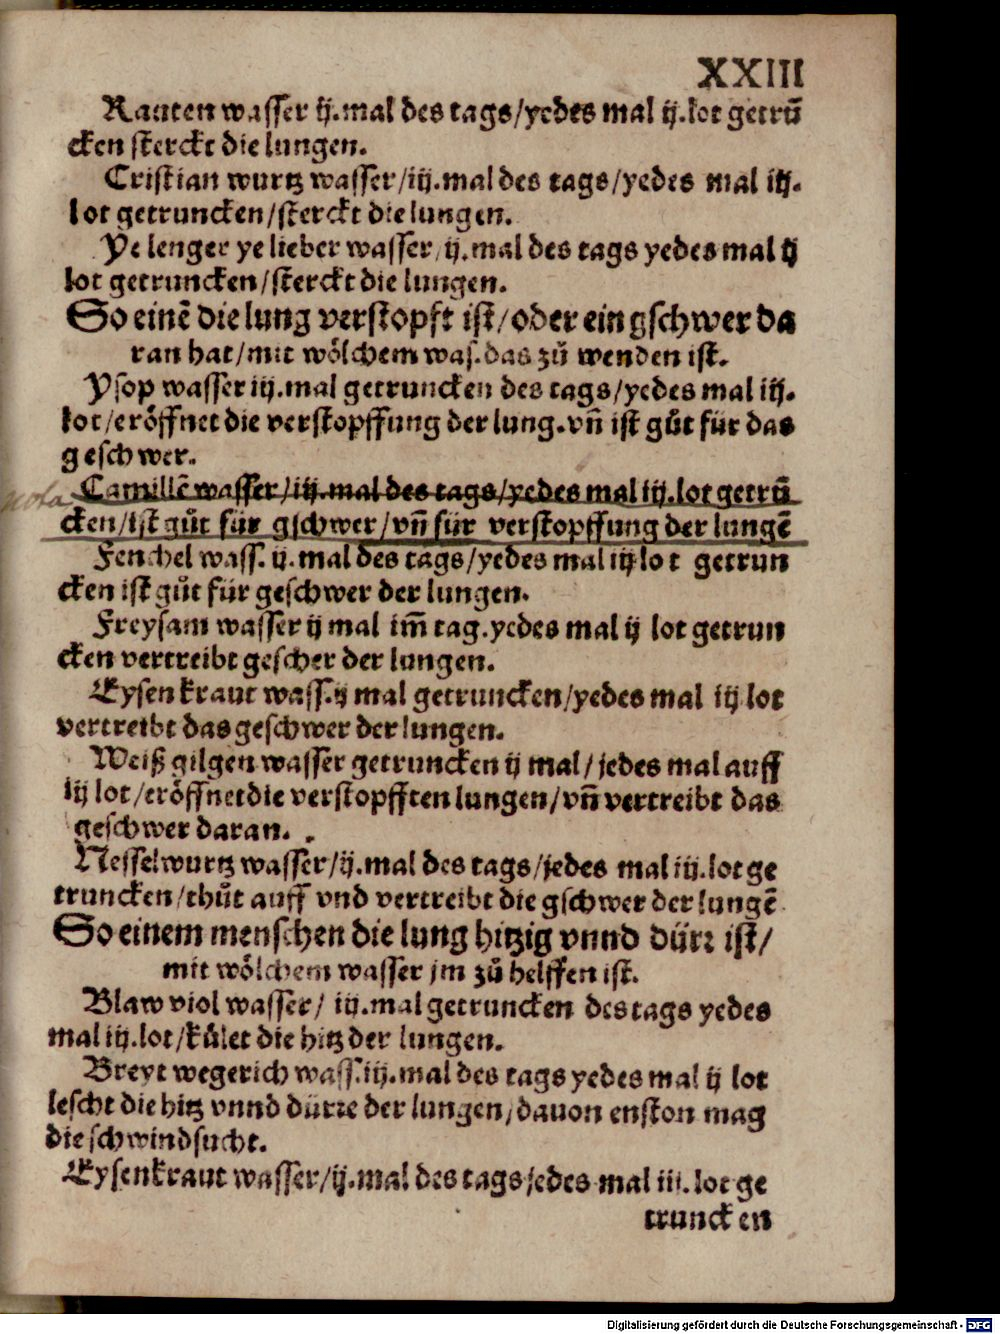 XXIII
Rauten wasser ij.mal des tags/yedes mal ij.lot getrū
cken sterckt die lungen.
Cristian wurtz wasser/iij.mal des tags/yedes mal iij.
lot getruncken/sterckt die lungen.
Ye lenger ye lieber wasser/ij.mal des tags yedes mal ij
lot getruncken/sterckt die lungen.
So einē die lung verstopft ist/oder ein gschwer da
ran hat/mit wölchem was.das zů wenden ist.
Ysop wasser iij.mal getruncken des tags/yedes mal iij.
lot/eröffnet die verstopffung der lung.vñ ist gůt für das
geschwer.
nota
Camillē wasser/iij.mal des tags/yedes mal iij.lot getrū
cken/ist gůt für gschwer/vñ für verstopffung der lungē
Fenchel wass.ij.mal des tags/yedes mal iij lot getrun
cken ist gůt für geschwer der lungen.
Freysam wasser ij mal im̄ tag.yedes mal ij lot getrun
cken vertreibt gescher der lungen.
Eysen kraut wass.ij mal getruncken/yedes mal iij lot
vertreibt das geschwer der lungen.
Weiß gilgen wasser getruncken ij mal/jedes mal auff
iij lot/eröffnet die verstopfften lungen/vñ vertreibt das
geschwer daran.
Nesselwurtz wasser/ij.mal des tags/jedes mal iij.lot ge
truncken/thůt auff vnd vertreibt die gschwer der lungē
So einem menschen die lung hitzig vnnd dürr ist/
mit wölchem wasser jm zů helffen ist.
Blaw viol wasser/ iij.mal getruncken des tags yedes
mal iij.lot/kůlet die hitz der lungen.
Breyt wegerich wass.iij.mal des tags yedes mal ij lot
lescht die hitz vnnd dürre der lungen/dauon enston mag
die schwindsucht.
Eysenkraut wasser/ij.mal des tags jedes mal iij.lot ge
truncken
Digitalisierung gefördert durch die Deutsche Forschungsgemeinschaft - DFG